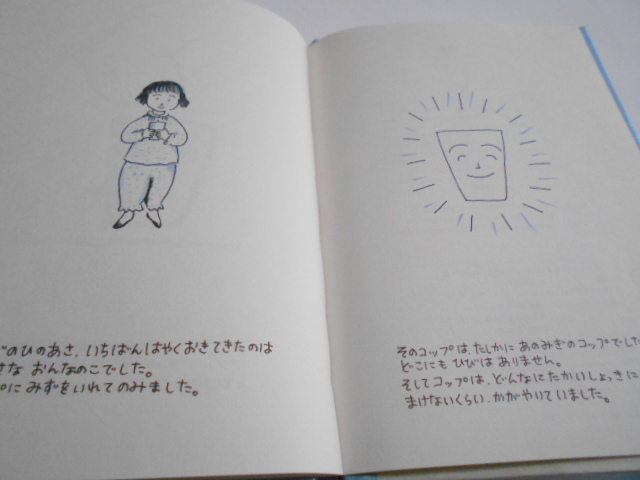 のひのあさ、いちばんはやくおきてきたのは
な おんなのこでした。
プに みずをいれてのみました。
そのコップは、たしかに あのみぎのコップでした
どこにも ひびは ありません。
そしてコップは、どんなにたかいしょっきに
まけないくらい、かがやいていました。